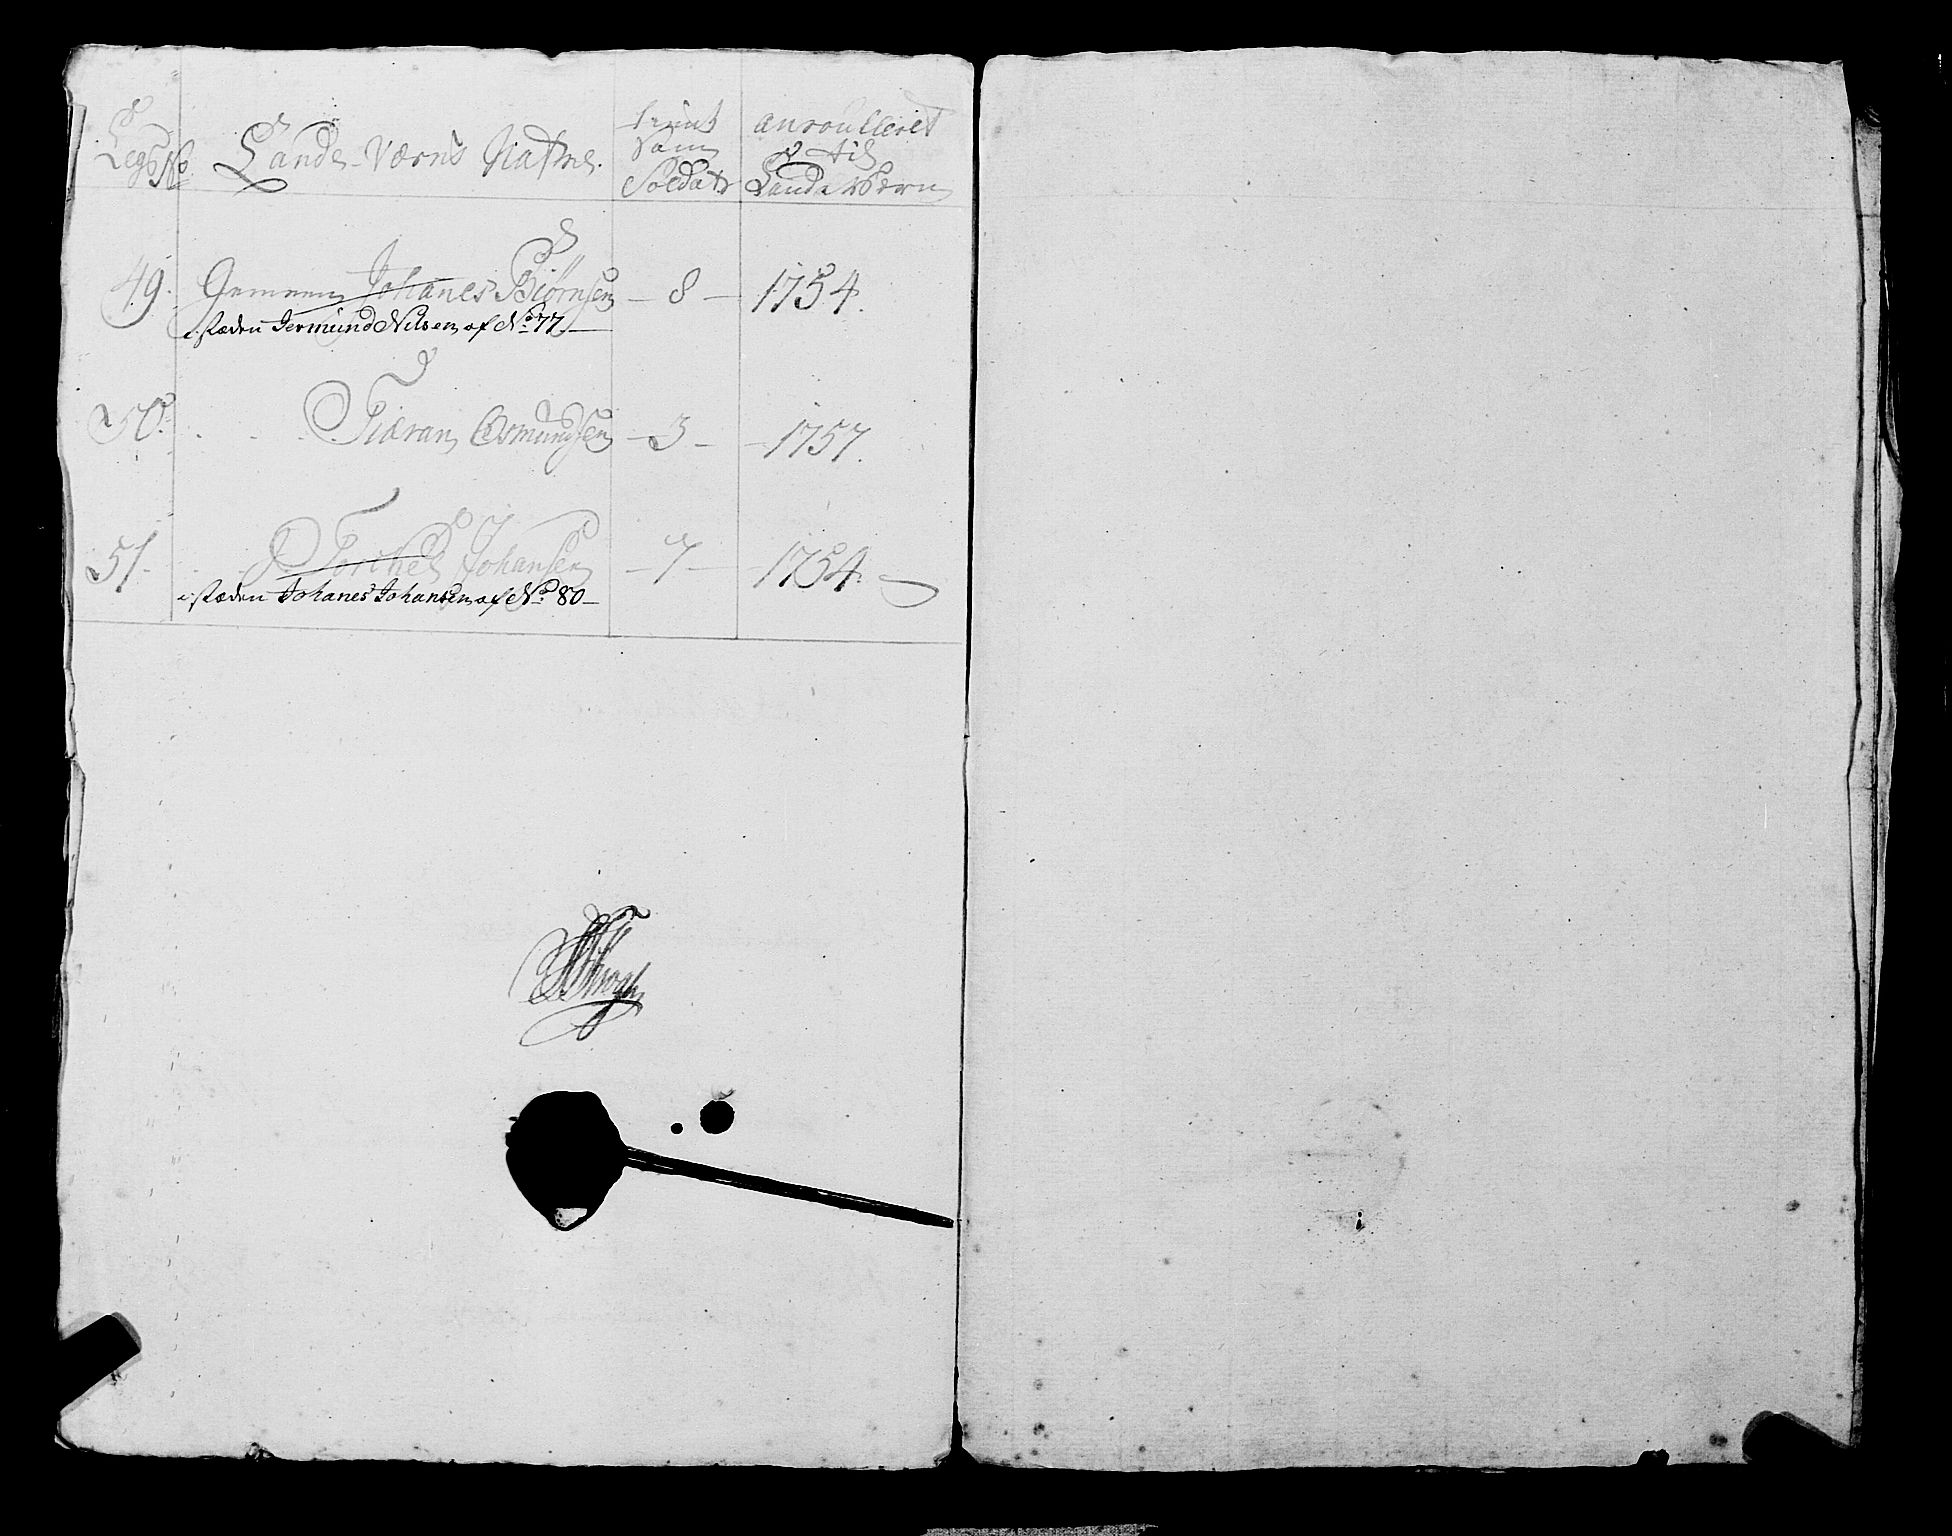 Legs No Lands-Værns Nafne. tient som Soldat anroulleret til Landeværn
49. Gemeen Johanes Biørnsen — 8 — 1754.
i stæden Jermund Nilsen af No. 77
50. Tiæran Osmundsen — 3 — 1757.
51. Torchel Johansen — 7 — 1754.
i stæden Johanes Johansen af No. 80